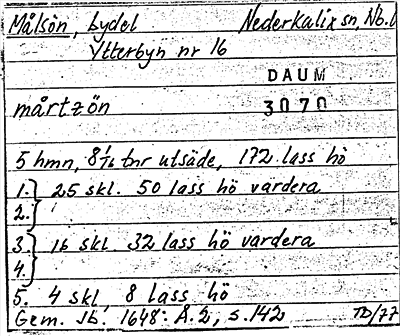 Målsön, bydel Nederkalix sn, Nb.l
Ytterbyn nr 16
DAUM
mårtzön 3070
5 hmn, 8 1/16 tnr utsäde, 172 lass hö
1.} 25 skl. 50 lass hö vardera
2.}
3.} 16 skl. 32 lass hö vardera
4.}
5. 4 skl, 8 lass hö
Gem. Jb. 1648: Å.2, s.142 TD/77